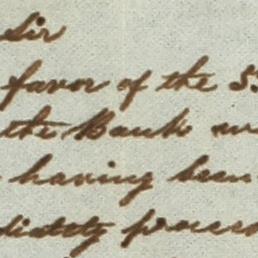 Sir
favor of the 5
the Bank
having been
diately